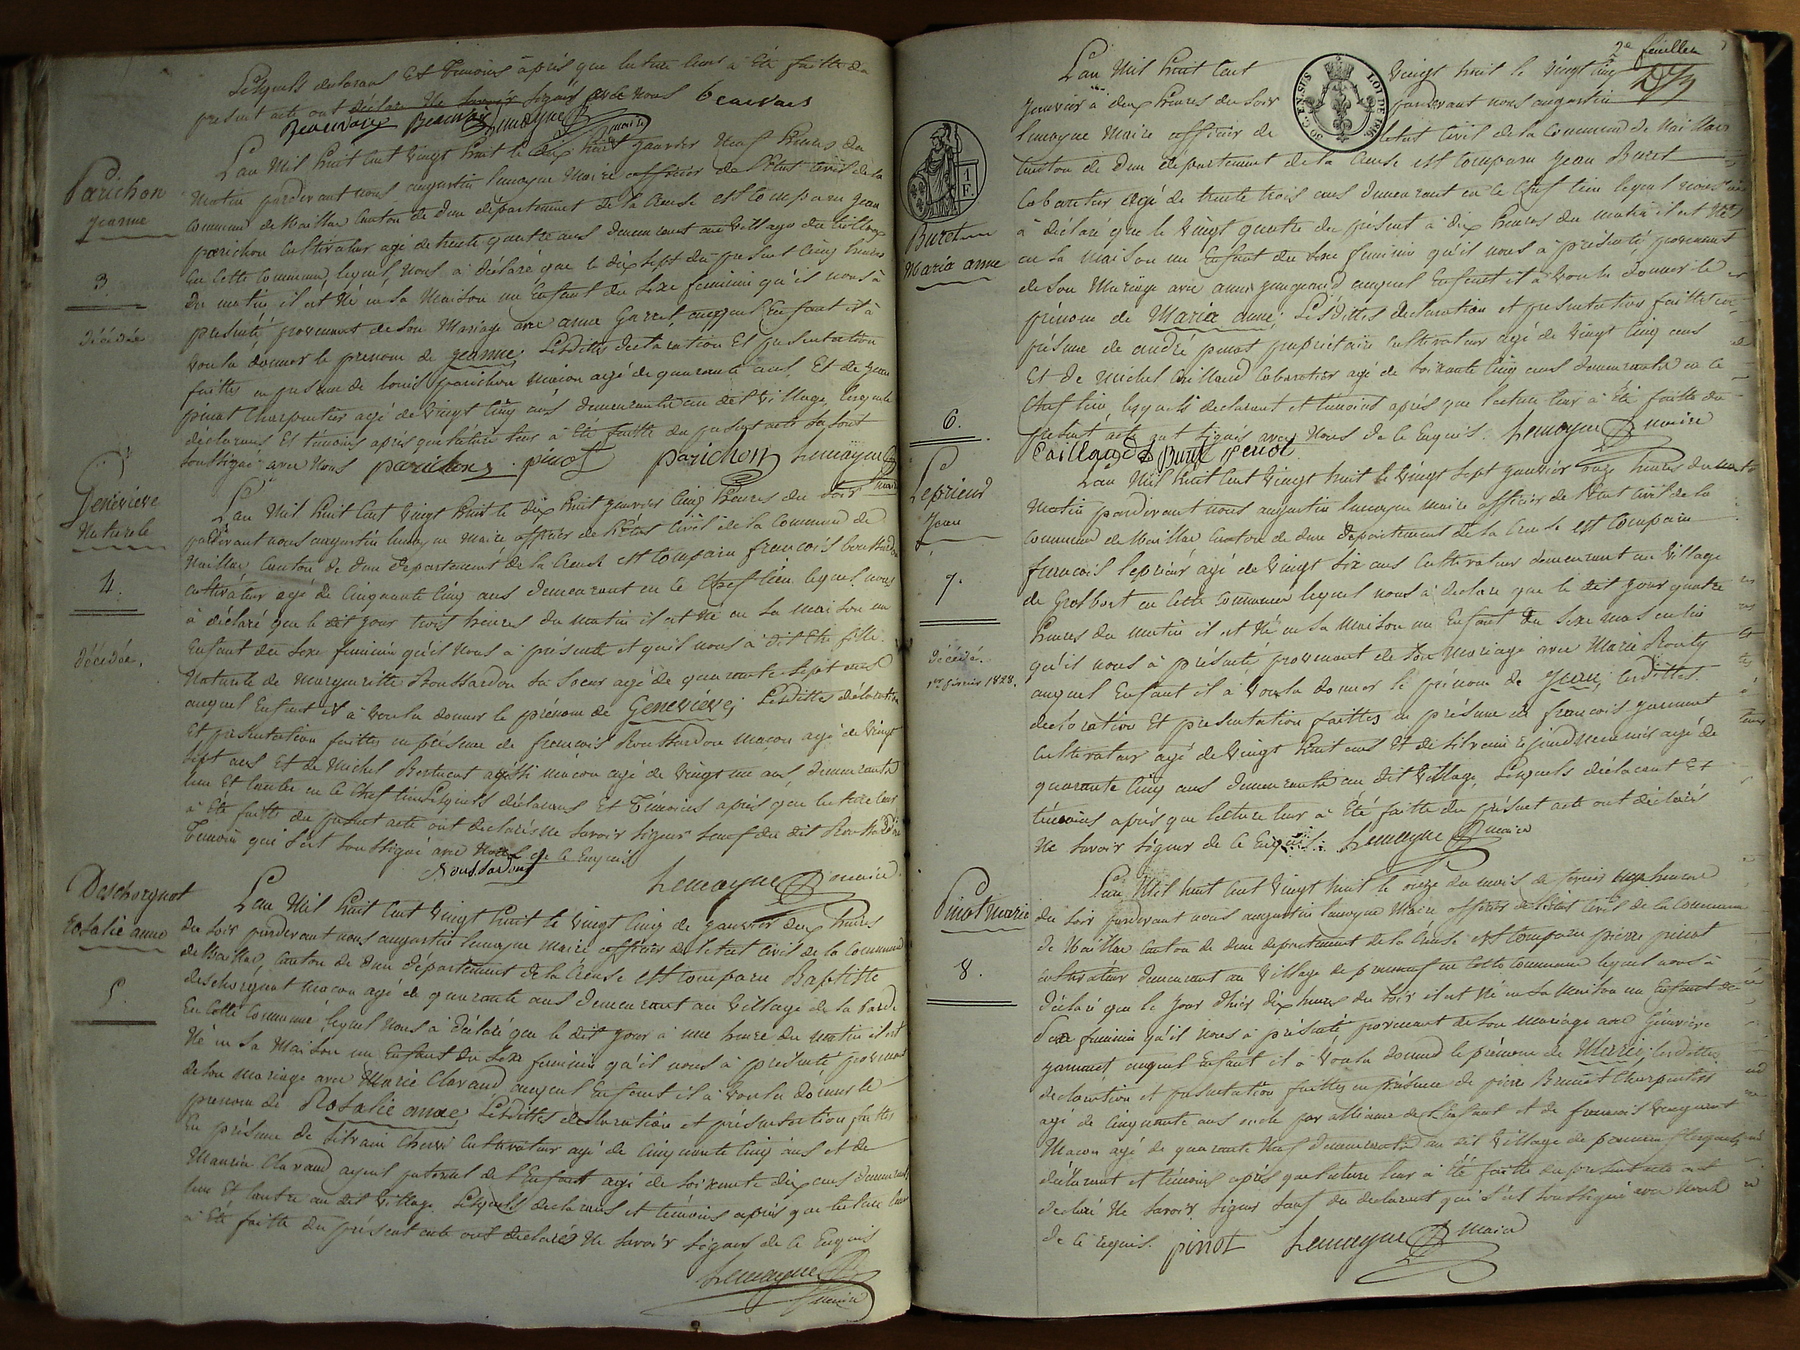 Lesquels declarans Et temoins après que lecture leur à été faitte du
présent acte ont déclaré Ne Savoir signer avec nous beauvais
Beauvais Beauvais Lemoyne maire
Parichon
jeanne
3.
décédée
L'an Mil huit Cent Vingt huit le dix huit janvier Neuf heures du
Matin pardevant nous augustin Lemoyne Maire officier de l'état Civil de la
Commune de Maillat Canton de dun département de la Creuse est Comparu jean
parichon Cultivateur agé de trente quatre ans demeurant au village du
En Cette Commune, lequel, Nous à déclaré que le dix sept du présent Cinq heures
Du matin il est Né en sa Maison un Enfant du Sexe féminin qu'il nous à
présenté, provenant de Son Mariage avec anne auquel Enfant il à
voulu donner le prenom de jeanne, Lesdittes declaration Et presentation
faittes en presence de louis parichon Maçon agé de quarante ans, Et de jean
pinot Charpentier agé de Vingt Cinq ans demeurants au dit Village, lesquels
déclarans Et témoins après que lecture leur à été faitte du présent acte se sont
soussigné avec Nous parichon pinot parichon Lemoyne maire
Geneviève
Naturele
4.
décédée.
L'an Mil huit Cent Vingt huit le dix huit janvier Cinq heures du soir
pardevant nous augustin lemoyne maire officier de l'état Civil de la Commune de
Maillat Canton de dun departement de la Creuse est Comparu françois
Cultivateur agé de Cinquante Cinq ans demeurant en ce Chef lieu lequel nous
à déclaré que le dit jour trois heures du matin il est Né en Sa maison un
Enfant du Sexe feminin qu'il Nous à présenté et qu'il nous à dit être fille
Naturele de Margueritte Roussardon Sa Soeur agé de quarante Sept ans
auquel Enfant il à voulu donner le prénom de Geneviève; Lesdittes déclaration
Et présentation faittes en présence de françois Roussardon maçon agé de Vingt
Sept ans Et de Michel aussi maçon agé de Vingt un ans demeurants
l'un Et l'autre en ce Chef lieu Lesquels déclarans Et Témoins après que lecture leur
à été faitte du présent acte ont declarés Ne Savoir Signer Sauf du dit Roussardon
Temoin qui S'est Soussigné avec Nous de ce Enquis
Roussardon Lemoyne maire
Deschorgnot
Rosalie anne
5.
L'an Mil huit Cent Vingt huit le Vingt Cinq de janvier deux heures
du Soir pardevant nous augustin lemoyne maire officier de l'état Civil de la Commune
de Maillat, Canton de dun département de la Creuse est Comparu Baptiste
deschorgnot maçon agé de quarante ans demeurant au Village de la
En Cette Commune, lequel Nous à déclaré que le dit jour à une heure du matin il est
Né en Sa Maison un Enfant du Sexe feminin qu'il nous à présenté provenant
de Son Mariage avec Marie Clavaud auquel Enfant il à Voulu donner le
prenom de Rosalie anne Lesdittes déclaration et présentation faittes
En présence de Silvain Cultivateur agé de Cinquante Cinq ans et de
Maurice Clavaud ayeul paternel de l'Enfant agé de Soixante dix ans demeurants
l'un Et l'autre au dit Village. Lesquels declarans et témoins après que lecture leur
à Eté faitte du présent acte ont déclarés Ne Savoir Signer de ce Enquis
Lemoyne
maire
2e feuillet
30 C. EN SUS LOI DE 1816
1 F.
Buret
Maria anne
6.
L'an Mil huit Cent Vingt huit le Vingt Cinq
janvier à deux heures du Soir pardevant nous augustin
Lemoyne Maire officier de l'état Civil de la Commune de Maillat
Canton de Dun département de la Creuse est Comparu jean Buret
Cabaretier agé de trente trois ans demeurant en ce Chef lieu lequel nous
à déclaré que le Vingt quatre du présent à dix heures du matin il est Né
en Sa Maison un Enfant du Sexe féminin qu'il nous à présenté, provenant
de Son Mariage avec anne auquel Enfant il à voulu donner le
prénom de Maria anne; Lesdittes declaration et presentation faittes en
présence de andré pinot propriétaire Cultivateur agé de Vingt Cinq ans
Et de Michel Caillaud Cabaretier agé de Soixante Cinq ans demeurants en ce
Chef lieu, lesquels declarant et témoins après que lecture leur à Eté faitte du
présent acte ont Signés avec Nous de ce Enquis. Lemoyne maire
Caillaud Buret Pinot
Leprieur
Jean
7.
décédé.
1er février 1828.
L'an Mil huit Cent Vingt huit le Vingt Sept janvier onze heures du
Matin pardevant nous augustin lemoyne maire officier de l'état Civil de la
Commune de Maillat Canton de dun département de la Creuse est Comparu
françois leprieur agé de Vingt Six ans Cultivateur demeurant au Village
de Grosbost en Cette Commune lequel nous à déclaré que le dit jour quatre
heures du matin il est Né en Sa Maison un Enfant du Sexe masculin
qu'il nous à présenté, provenant de Son Mariage avec Marie
auquel Enfant il à Voulu donner le prénom de Jean; lesdittes
declaration Et présentation faittes en présence de françois
Cultivateur agé de Vingt huit ans Et de Silvain agé de
quarante Cinq ans demeurants au dit Village, Lesquels déclarant Et
témoins après que lecture leur à Eté faitte du présent acte ont déclarés
Ne Savoir Signer de ce Enquis. Lemoyne maire
Pinot Marie
8.
L'an Mil huit Cent Vingt huit le onze du mois de février heure
du Soir pardevant nous augustin lemoyne Maire officier de l'état Civil de la Commune
de Maillat Canton de dun departement de la Creuse est Comparu pierre pinot
Cultivateur demeurant au Village de en Cette Commune lequel nous à
déclaré que le jour d'hier dix heures du Soir il est Né en Sa Maison un Enfant du
Sexe féminin qu'il nous à présenté provenant de Son Mariage avec Géneviève
auquel Enfant il à Voulu donner le prénom de Marie; lesdittes
declaration et présentation faittes en présence de pierre Brunet Charpentier
agé de Cinquante ans oncle par alliance de l'Enfant et de francois
Macon agé de quarante Neuf demeurants au dit Village de lesquels
déclarant et témoins après que lecture leur à été faitte du présent acte ont
declaré Ne Savoir Signer Sauf du declarant qui S'est Soussigné avec Nous
de ce requis. pinot Lemoyne maire